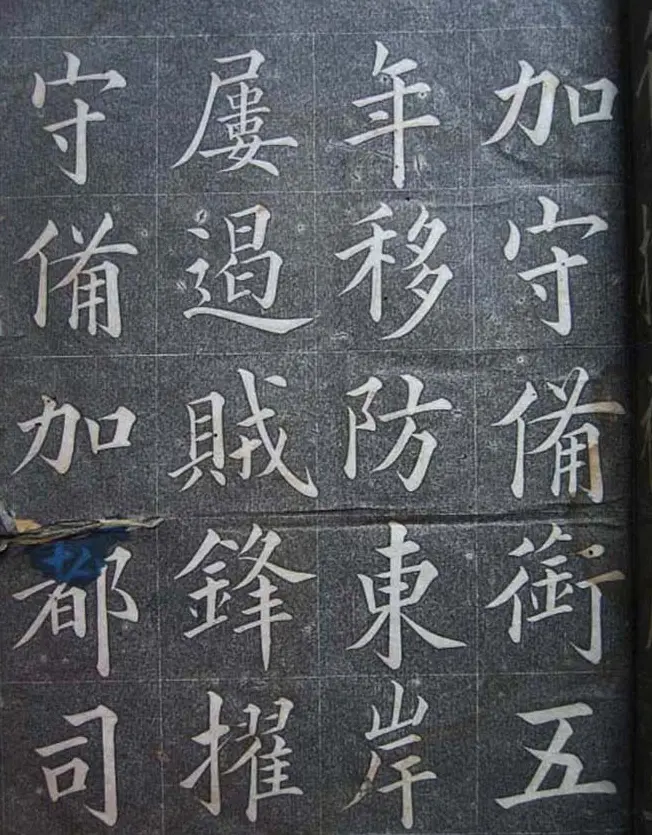 加守備銜五
年移防東岸
屢遏賊鋒擢
守備加都司